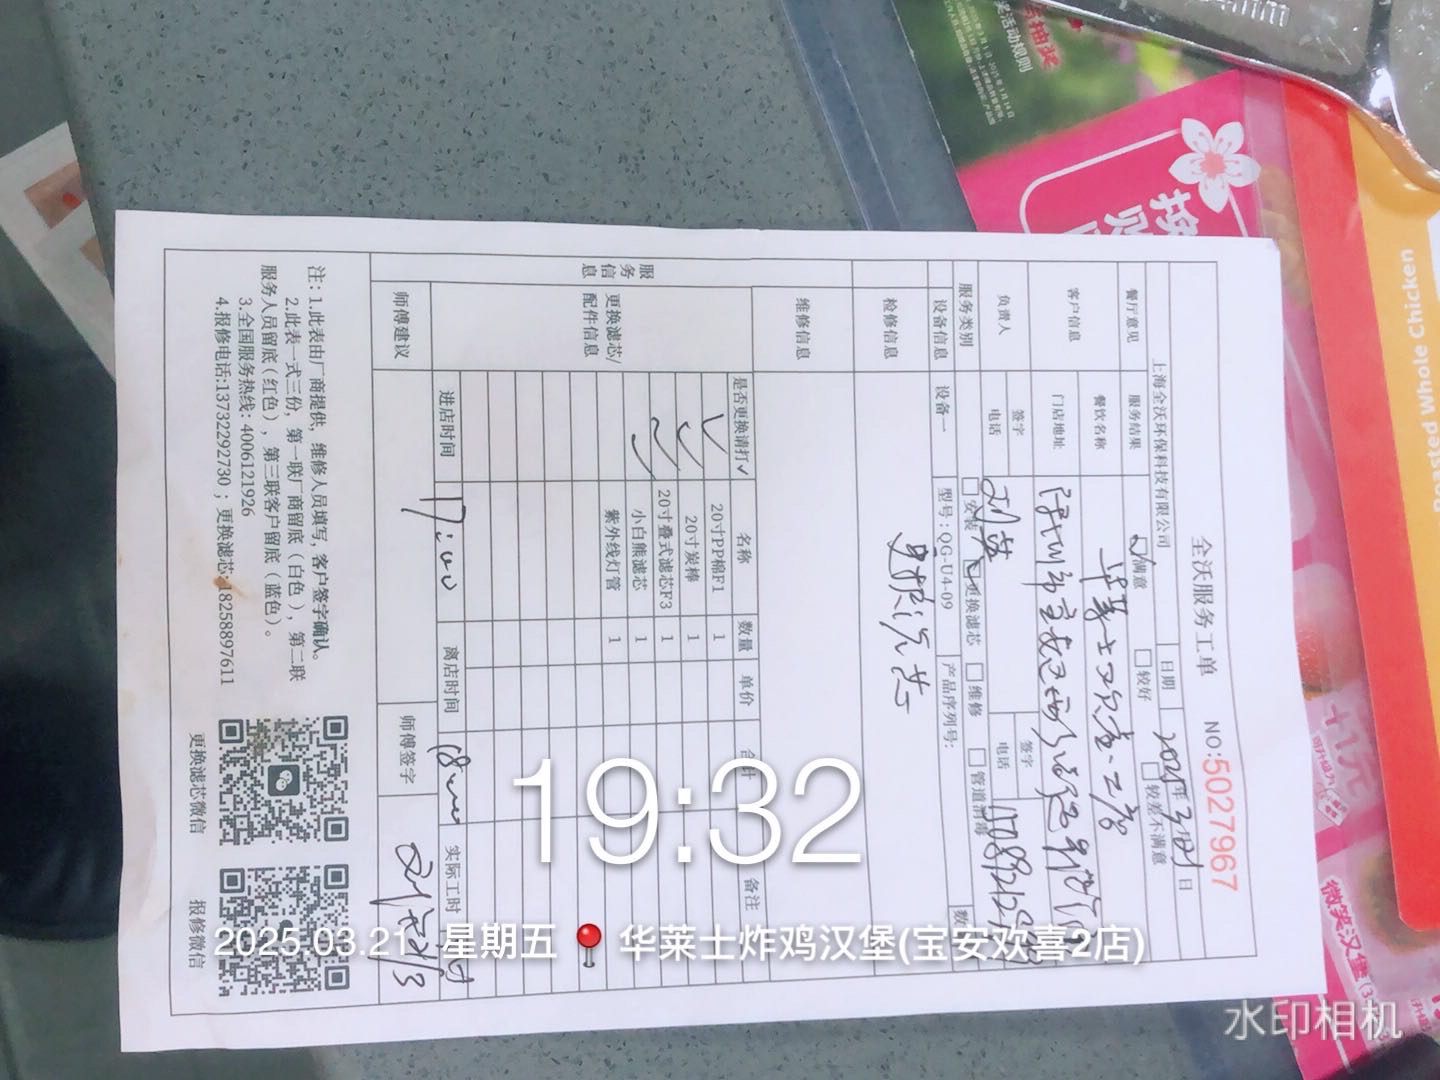 全沃服务工单
NO:5027967
上海全沃环保科技有限公司
日期
2025年3月21日
餐厅意见
服务结果
满意
较好
较差不满意
客户信息
餐饮名称
华莱士欢喜二店
门店地址
深圳市宝安区西乡街道
负责人
签字
签字
电话
电话
服务类别
安装
更换滤芯
维修
管道消毒
设备信息
设备一
型号:QG-U4-09
产品序列号:
数
检修信息
更换滤芯
维修信息
服务信息
更换滤芯/配件信息
是否更换请打✓
名称
数量
单价
合计
备注
✓ 20寸PP棉F1 1
✓ 20寸炭棒 1
✓ 20寸叠式滤芯F3 1
✓ 小白熊滤芯 1
紫外线灯管 1
进店时间
17:00
离店时间
18:00
实际工时
师傅建议
师傅签字
注: 1.此表由厂商提供, 维修人员填写, 客户签字确认。
2.此表一式三份, 第一联厂商留底(白色), 第二联
服务人员留底(红色), 第三联客户留底(蓝色)。
3.全国服务热线: 4006121926
4.报修电话:13732292730; 更换滤芯:18258897611
更换滤芯微信
报修微信
19:32
2025.03.21 星期五 华莱士炸鸡汉堡(宝安欢喜2店)
水印相机
抽奖
奖活动规则
Roasted Whole Chicken
+1元
微笑汉堡